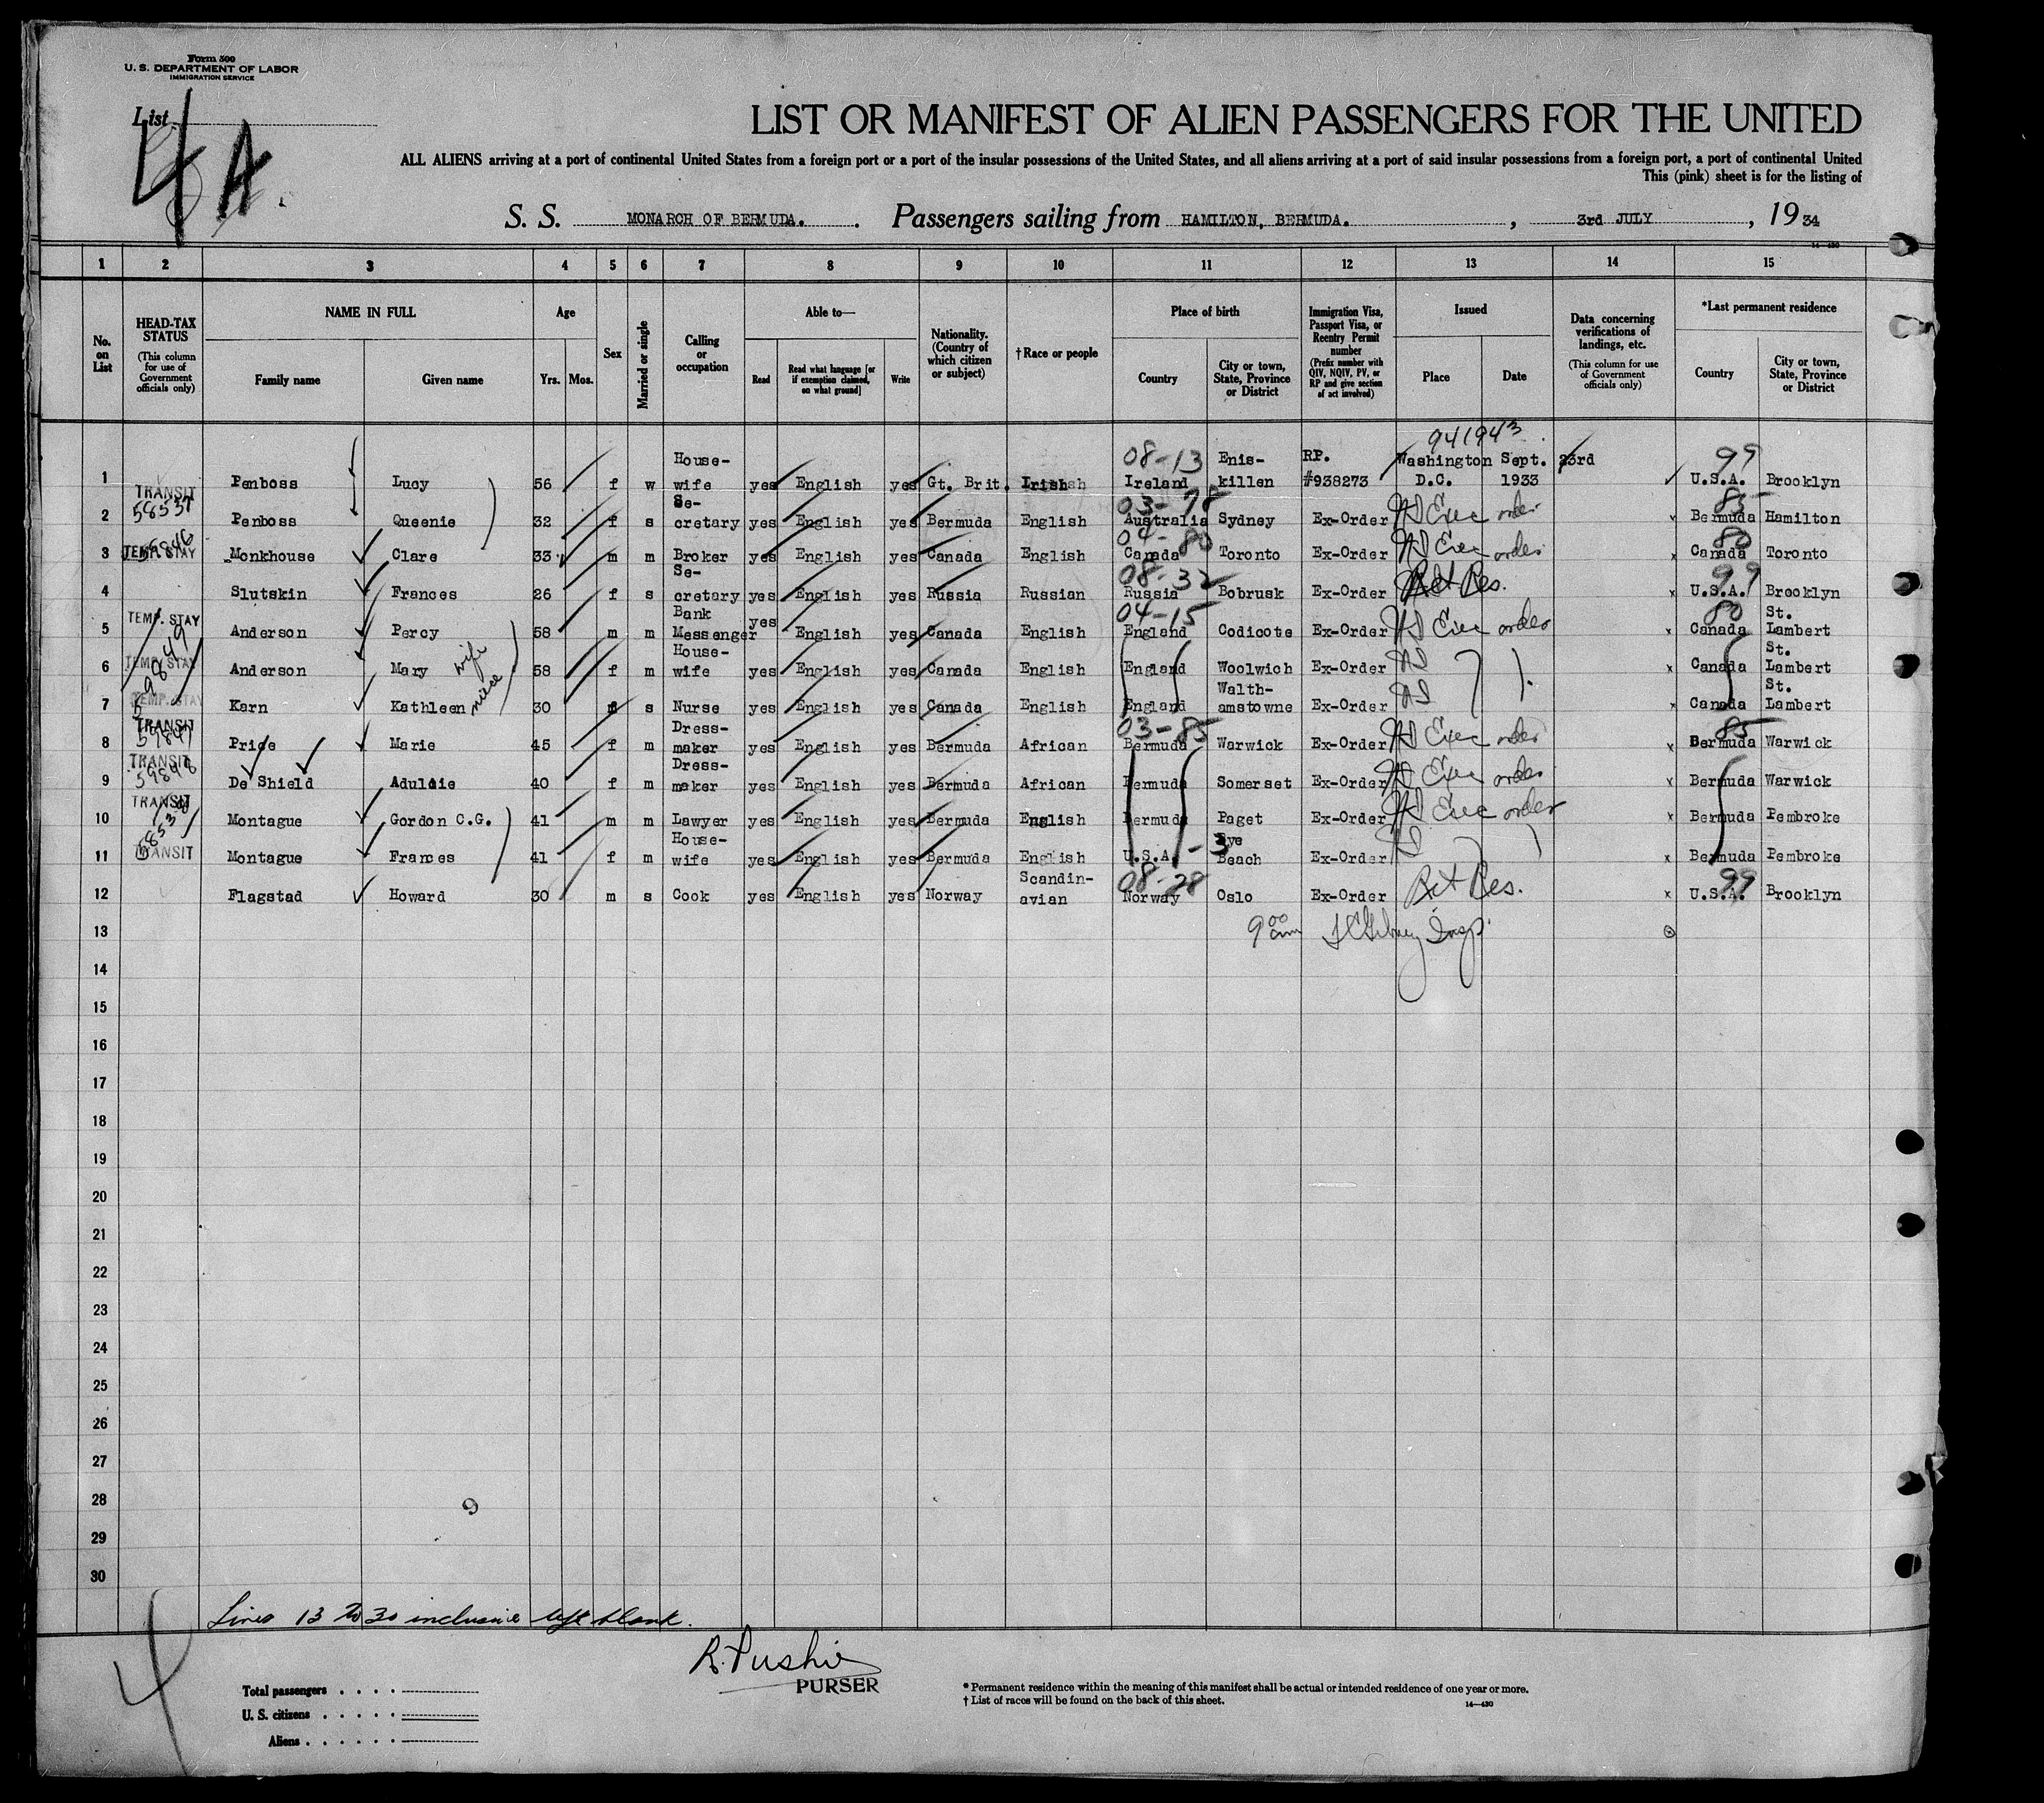 Form 500
U. S. DEPARTMENT OF LABOR
IMMIGRATION SERVICE
List
4A.
LIST OR MANIFEST OF ALIEN PASSENGERS FOR THE UNITED
ALL ALIENS arriving at a port of continental United States from a foreign port or a port of the insular possessions of the United States, and all aliens arriving at a port of said insular possessions from a foreign port, a port of continental United
This (pink) sheet is for the listing of
S. S. MONARCH OF BERMUDA. Passengers sailing from HAMILTON, BERMUDA. , 3rd JULY , 1934
14—430
1 2 3 4 5 6 7 8 9 10 11 12 13 14 15
No. on List
HEAD-TAX STATUS (This column for use of Government officials only)
NAME IN FULL Family name Given name
Age Yrs. Mos.
Sex
Married or single
Calling or occupation
Able to— Read Read what language [or if exemption claimed, on what ground] Write
Nationality. (Country of which citizen or subject)
†Race or people
Place of birth Country City or town, State, Province or District
Immigration Visa, Passport Visa, or Reentry Permit number (Prefix number with QIV, NQIV, PV, or RP and give section of act involved)
Issued Place Date
Data concerning verifications of landings, etc. (This column for use of Government officials only)
*Last permanent residence Country City or town, State, Province or District
941943
1 Penboss Lucy 56 f w House-wife yes English yes Gt. Brit. Irish 08-13 Ireland Enis-killen RP. #938273 Washington D.C. Sept. 23rd 1933 99 U.S.A. Brooklyn
2 TRANSIT 58537 Penboss Queenie 32 f s Se-cretary yes English yes Bermuda English 03-78 Australia Sydney Ex-Order Exec order x 85 Bermuda Hamilton
3 TEMP. STAY Monkhouse Clare 33 m m Broker yes English yes Canada English 04-80 Canada Toronto Ex-Order Exec order x 80 Canada Toronto
4 Slutskin Frances 26 f s Se-cretary yes English yes Russia Russian 08-32 Russia Bobrusk Ex-Order Ret Res. x 99 U.S.A. Brooklyn
5 TEMP. STAY Anderson Percy 58 m m Bank Messenger yes English yes Canada English 04-15 England Codicote Ex-Order Exec order x 80 Canada St. Lambert
6 TEMP. STAY 59849 Anderson Mary wife 58 f m House-wife yes English yes Canada English England Woolwich Ex-Order x Canada St. Lambert
7 TEMP. STAY Karn Kathleen niece 30 f s Nurse yes English yes Canada English England Walth-amstowne Ex-Order x Canada St. Lambert
8 TRANSIT 59847 Pride Marie 45 f m Dress-maker yes English yes Bermuda African 03-85 Bermuda Warwick Ex-Order Exec order x 85 Bermuda Warwick
9 TRANSIT 59848 De Shield Adulcie 40 f m Dress-maker yes English yes Bermuda African Bermuda Somerset Ex-Order Exec order x Bermuda Warwick
10 TRANSIT 58538 Montague Gordon C.G. 41 m m Lawyer yes English yes Bermuda English Bermuda Paget Ex-Order Exec order x Bermuda Pembroke
11 TRANSIT Montague Frances 41 f m House-wife yes English yes Bermuda English U.S.A. Rye Beach Ex-Order x Bermuda Pembroke
12 Flagstad Howard 30 m s Cook yes English yes Norway Scandin-avian 08-28 Norway Oslo Ex-Order Ret Res. x 99 U.S.A. Brooklyn
13 9 00 am Insp.
14
15
16
17
18
19
20
21
22
23
24
25
26
27
28
9
29
30
Lines 13 to 30 inclusive left blank.
4
R. Pushie
PURSER
Total passengers
U. S. citizens
Aliens
* Permanent residence within the meaning of this manifest shall be actual or intended residence of one year or more.
† List of races will be found on the back of this sheet.
14—430